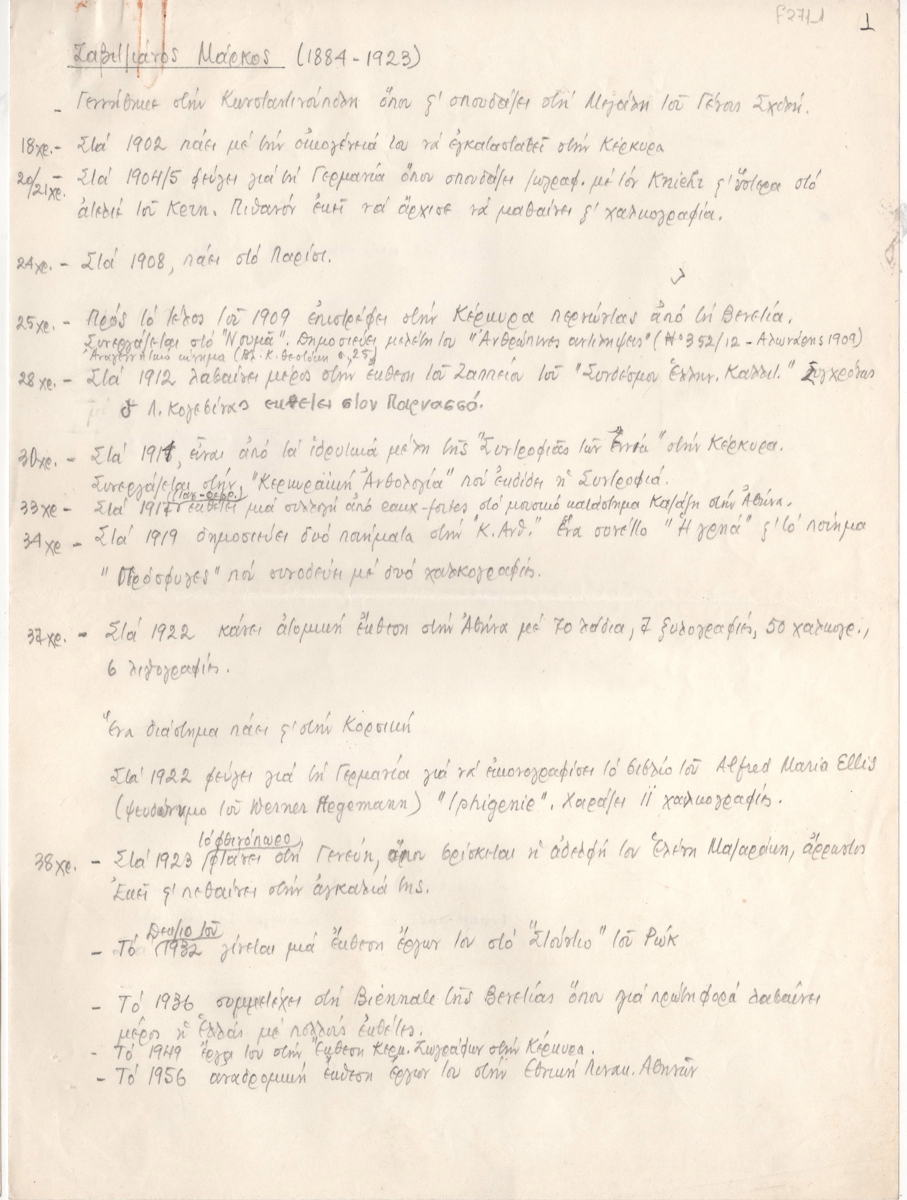 F271_1 1
Ζαβιτζιάνος Μάρκος (1884-1923)
- Γεννήθηκε στήν Κωνσταντινούπολη ὅπου ϛ' σπουδάζει στή Μεγάλη τοῦ Γένους Σχολή.
18χρ. - Στά 1902 πάει μέ τήν οἰκογένειά του νά ἐγκατασταθεῖ στήν Κέρκυρα
20/21χρ. - Στά 1904/5 φεύγει γιά τή Γερμανία ὅπου σπουδάζει ζωγραφ. μέ τόν Knirr ϛ' ὕστερα στό
ἀτελιέ τοῦ Κερν. Πιθανόν ἐκεῖ νά ἄρχισε νά μαθαίνει ϛ' χαλκογραφία.
24χρ. - Στά 1908, πάει στό Παρίσι.
25χρ. - Πρός τό τέλος τοῦ 1909 ἐπιστρέφει στήν Κέρκυρα περνώντας ἀπό τή Βενετία.
Συνεργάζεται στό "Νουμᾶ". Δημοσιεύει μελέτη του "Ἀνθρώπινες ἀντιλήψεις" (Νο 352/12 - Ἁλωνάρης 1909)
Ἀναγεννητικό κίνημα (Βλ. Κ. Θεοτόκη σ. 25)
28χρ. - Στά 1912 λαβαίνει μέρος στήν ἔκθεση τοῦ Ζαππείου τοῦ "Συνδέσμου Ἑλλην. Καλλιτ." Συγχρόνως
ϛ Λ. Κογεβίνας εκθετει στον Παρνασσό.
30χρ. - Στά 1914, εἶναι ἀπό τά ἱδρυτικά μέλη τῆς "Συντροφιᾶς τῶν Ἐννιά" στήν Κέρκυρα.
Συνεργάζεται στήν "Κερκυραϊκή Ἀνθολογία" πού ἐκδίδει ἡ Συντροφιά.
33χρ - Στά 1917 (Ιαν-Φεβρ.) ἐκθέτει μιά συλλογή ἀπό eaux-fortes στό μουσικό κατάστημα Καζάζη στήν Ἀθήνα.
34χρ - Στά 1919 δημοσιεύει δυό ποιήματα στήν "Κ. Ἀνθ." Ἕνα σονέτο "Ἡ γρηά" ϛ' τό ποίημα
"Πρόσφυγες" πού συνοδεύει μέ δυό χαλκογραφίες.
37χρ. - Στά 1922 κάνει ἀτομική ἔκθεση στήν Ἀθήνα μέ 70 λάδια, 7 ξυλογραφίες, 50 χαλκογρ.,
6 λιθογραφίες.
Ἕνα διάστημα πάει ϛ' στήν Κορσική
Στά 1922 φεύγει γιά τή Γερμανία γιά νά εἰκονογραφίσει τό βιβλίο τοῦ Alfred Maria Ellis
(ψευδώνυμο τοῦ Werner Hegemann) "Iphigenie". Χαράζει 11 χαλκογραφίες.
τό φθινόπωρο,
38χρ. - Στά 1923 φτάνει στή Γενεύη, ὅπου βρίσκεται ἡ ἀδελφή του Ἑλένη Μαζαράκη, ἄρρωστος
Ἐκεῖ ϛ' πεθαίνει στήν ἀγκαλιά της.
- Τό Δεκ/ριο τοῦ 1932 γίνεται μιά ἔκθεση ἔργων του στό "Στούντιο" τοῦ Ρώκ
- Τό 1936 συμμετέχει στή Biennale τῆς Βενετίας ὅπου γιά πρώτη φορά λαβαίνει
μέρος ἡ Ἑλλάς μέ πολλούς ἐκθέτες.
- Τό 1949 ἔργα του στήν Ἔκθεση Κερκ. Ζωγράφων στήν Κέρκυρα.
- Τό 1956 ἀναδρομική ἔκθεση ἔργων του στήν Εθνική Πινακ. Ἀθηνῶν